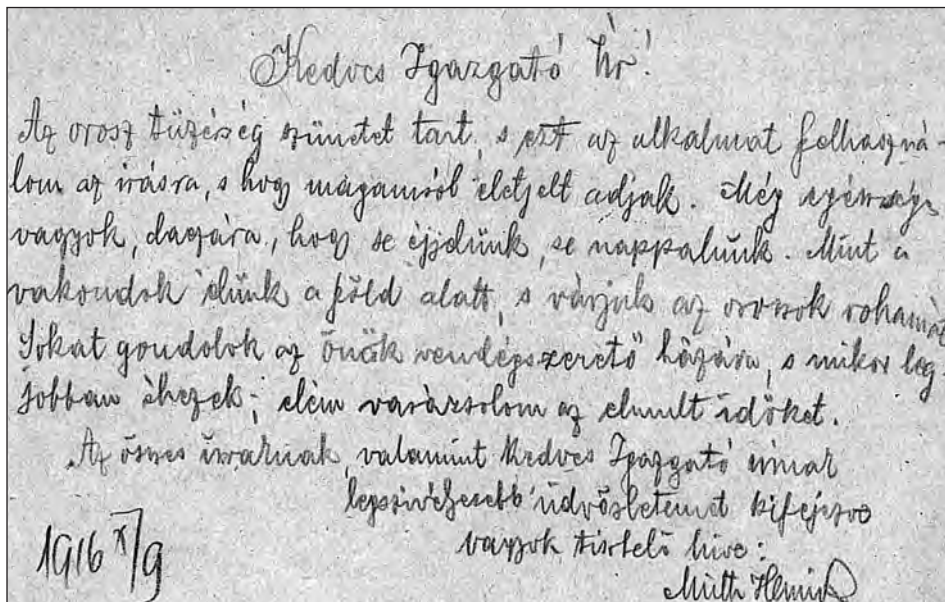 Kedves Igazgató Úr!
Az orosz tüzérség szünetet tart, s ezt az alkalmat felhaszná-
lom az írásra, s hogy magamról életjelt adjak. Még egészséges
vagyok, dacára, hogy se éjjelünk, se nappalunk. Mint a
vakondok élünk a föld alatt, s várjuk az oroszok rohamát.
Sokat gondolok az önök vendégszerető házára, s mikor leg-
jobban éhezek; elém varázsolom az elmult időket.
Az összes uraknak, valamint Kedves Igazgató úrnak
legszivélyesebb üdvözletemet kifejezve
vagyok tisztelő híve:
1916 X/9
Muth